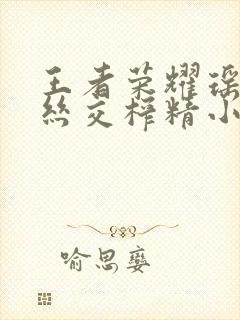 王者荣耀瑶
丝交榨精小
喻思嬖